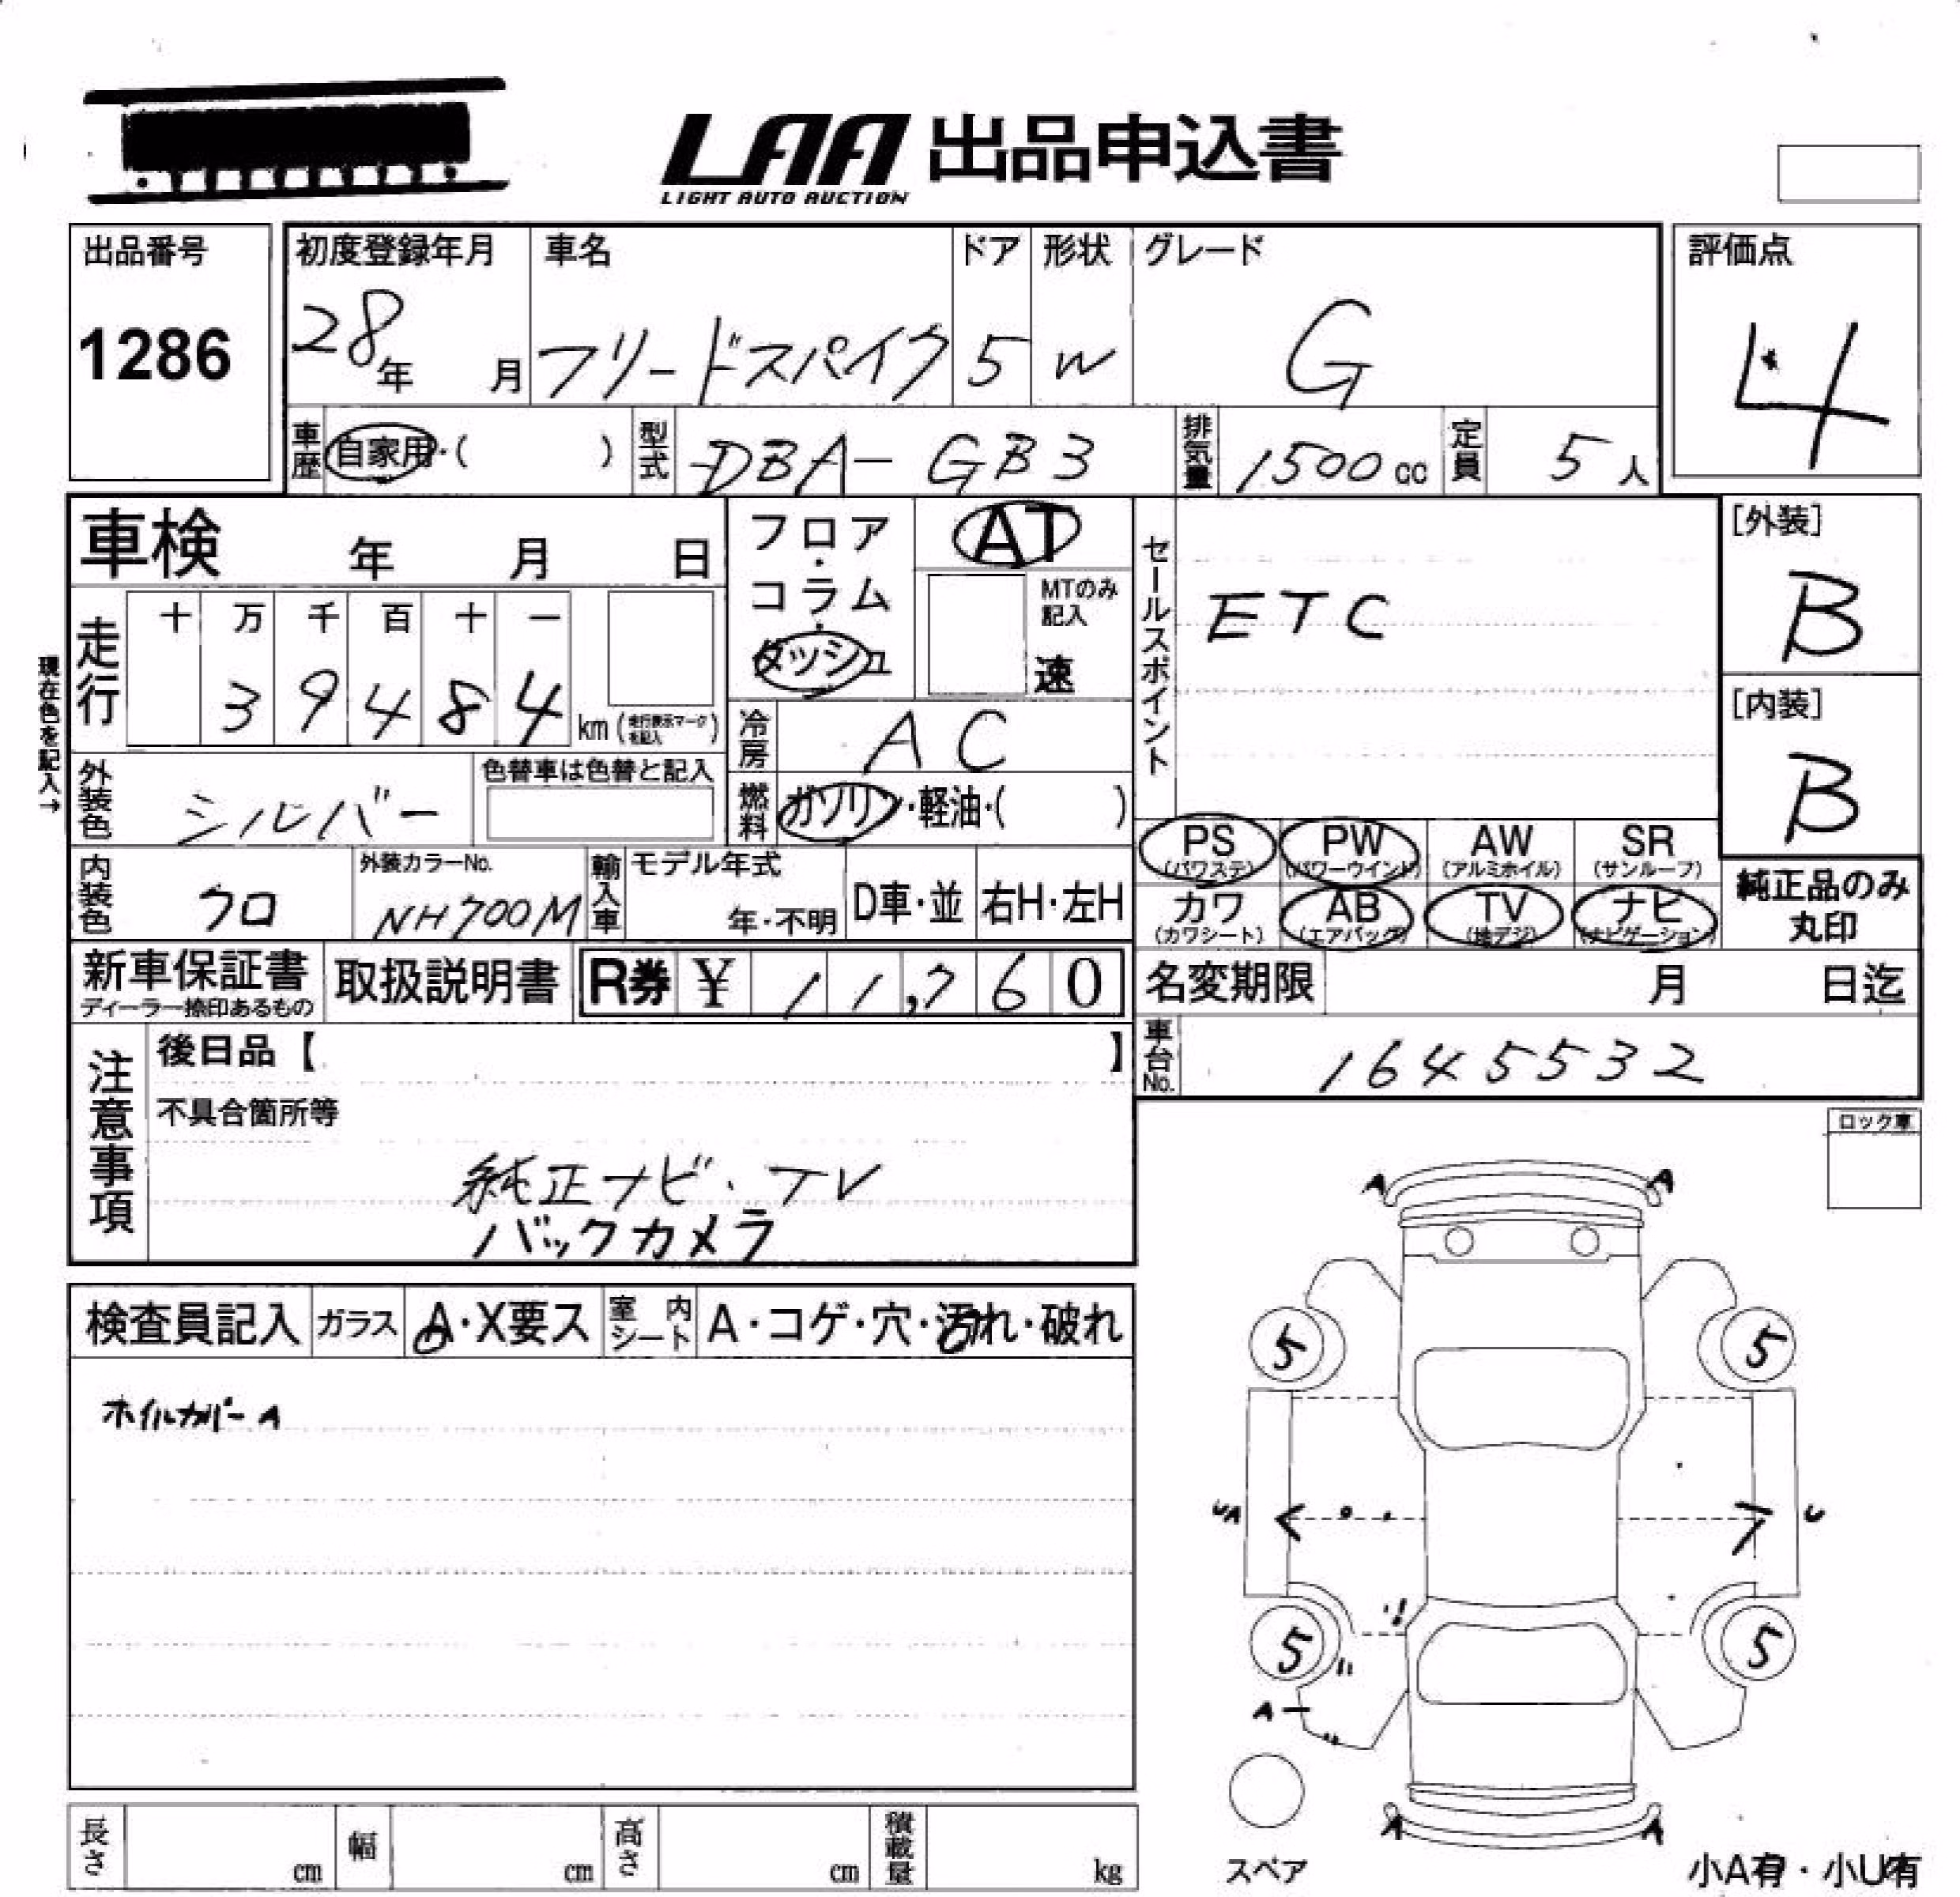 LAA 出品申込書
LIGHT AUTO AUCTION
出品番号
1286
初度登録年月
28年 月
車名
フリードスパイク
ドア
5
形状
W
グレード
G
評価点
4
車歴 自家用・( )
型式 DBA-GB3
排気量 1500cc
定員 5人
車検 年 月 日
フロア・コラム・ダッシュ
AT
MTのみ記入
速
セールスポイント
ETC
[外装]
B
[内装]
B
現在色を記入→
走行
十 万 千 百 十 一
3 9 4 8 4 km (走行表示マークを記入)
冷房 AC
外装色 シルバー
色替車は色替と記入
燃料 ガソリン・軽油・( )
PS (パワステ)
PW (パワーウインド)
AW (アルミホイル)
SR (サンルーフ)
カワ (カワシート)
AB (エアバッグ)
TV (地デジ)
ナビ (ナビゲーション)
純正品のみ丸印
内装色 クロ
外装カラーNo.
NH700M
輸入車 モデル年式
年・不明
D車・並
右H・左H
新車保証書
ディーラー捺印あるもの
取扱説明書
R券 ¥ 11,760
名変期限 月 日迄
車台No. 1645532
注意事項
後日品【 】
不具合箇所等
純正ナビ・TV
バックカメラ
ロック車
検査員記入
ガラス A・X要ス
室内シート A・コゲ・穴・汚れ・破れ
ホイルカバー A
A A
5 5
UA U
5 5
A
A A
スペア
小A有・小U有
長さ cm
幅 cm
高さ cm
積載量 kg